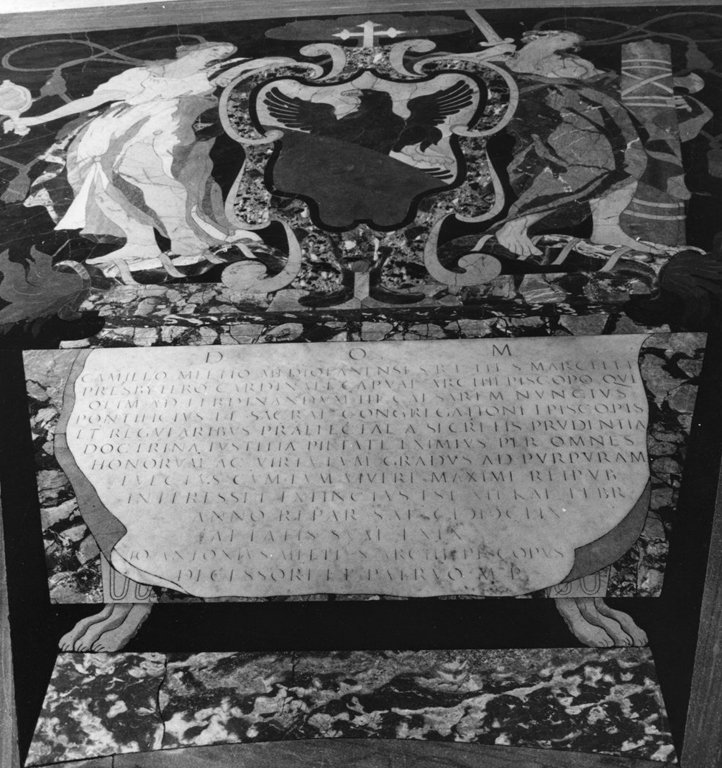 D O M
CAMILLO MELTIO MEDIOLANENSE S R E TIT S MARCELLI
PRESBYTERO CARDINALI CAPVAE ARCHIEPISCOPO QVI
OLIM AD FERDINANDVM III CAESAREM NVNCIVS
PONTIFICIVS ET SACRAE CONGREGATIONI EPISCOPIS
ET REGVLARIBVS PRAEFECTAE A SECRETIS PRVDENTIA
DOCTRINA IVSTITIA PIETATE EXIMIVS PER OMNES
HONORVM AC VIRTVTVM GRADVS AD PVRPVRAM
EVECTVS CVM EVM VIVERE MAXIME REIPVB
INTERESSET EXTINCTVS EST KAL FEBR
ANNO REPAR SAL
AETATIS SVAE
IO ANTONIVS MELTIVS ARCHIEPISCOPVS
DECESSORI ET PATRVO M P